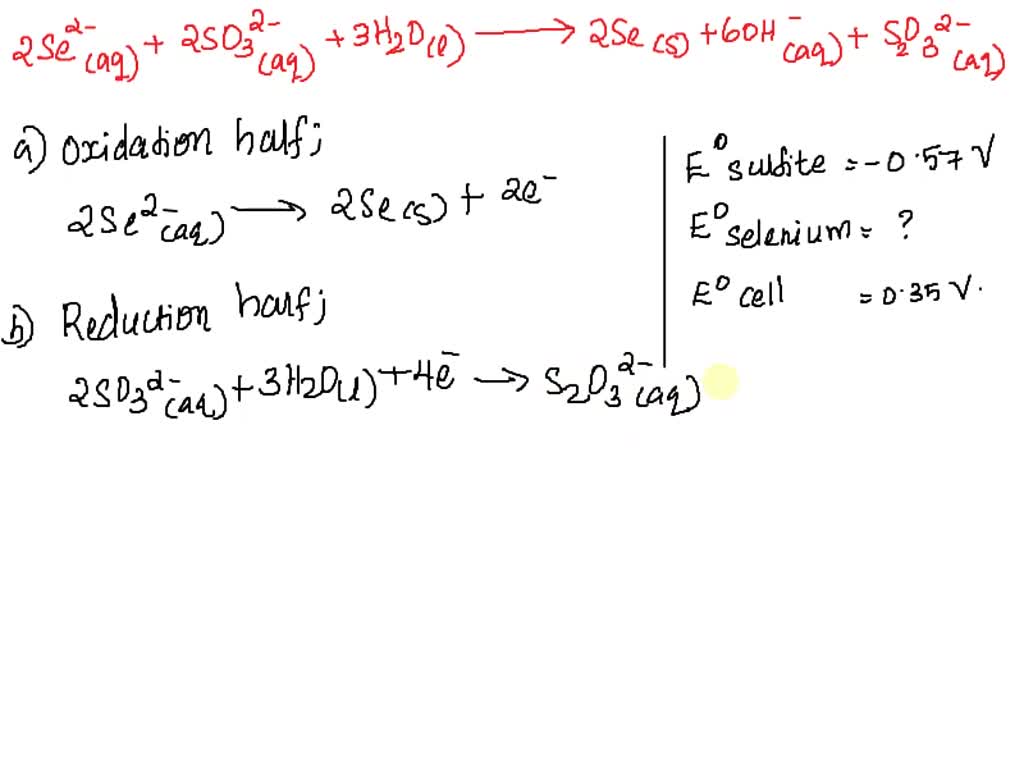 2Se²⁻(aq) + 2SO₃²⁻(aq) + 3H₂O(l) ⟶ 2Se(s) + 6OH⁻(aq) + S₂O₃²⁻(aq)
a) Oxidation half;
2Se²⁻(aq) ⟶ 2Se(s) + 2e⁻
b) Reduction half;
2SO₃²⁻(aq) + 3H₂O(l) + 4e⁻ ⟶ S₂O₃²⁻(aq)
E⁰ sulfite = -0.57 V
E⁰ selenium = ?
E⁰ cell = 0.35 V.